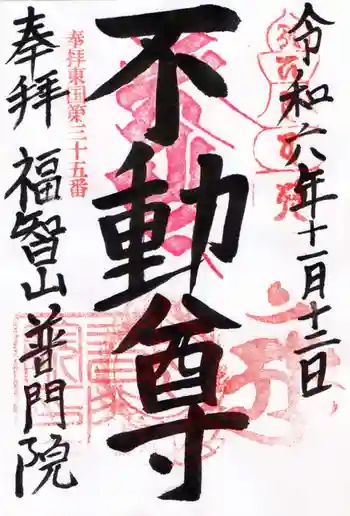 令和六年十一月十三日
不動尊
奉拝東国第三十五番
奉拝 福智山 普門院